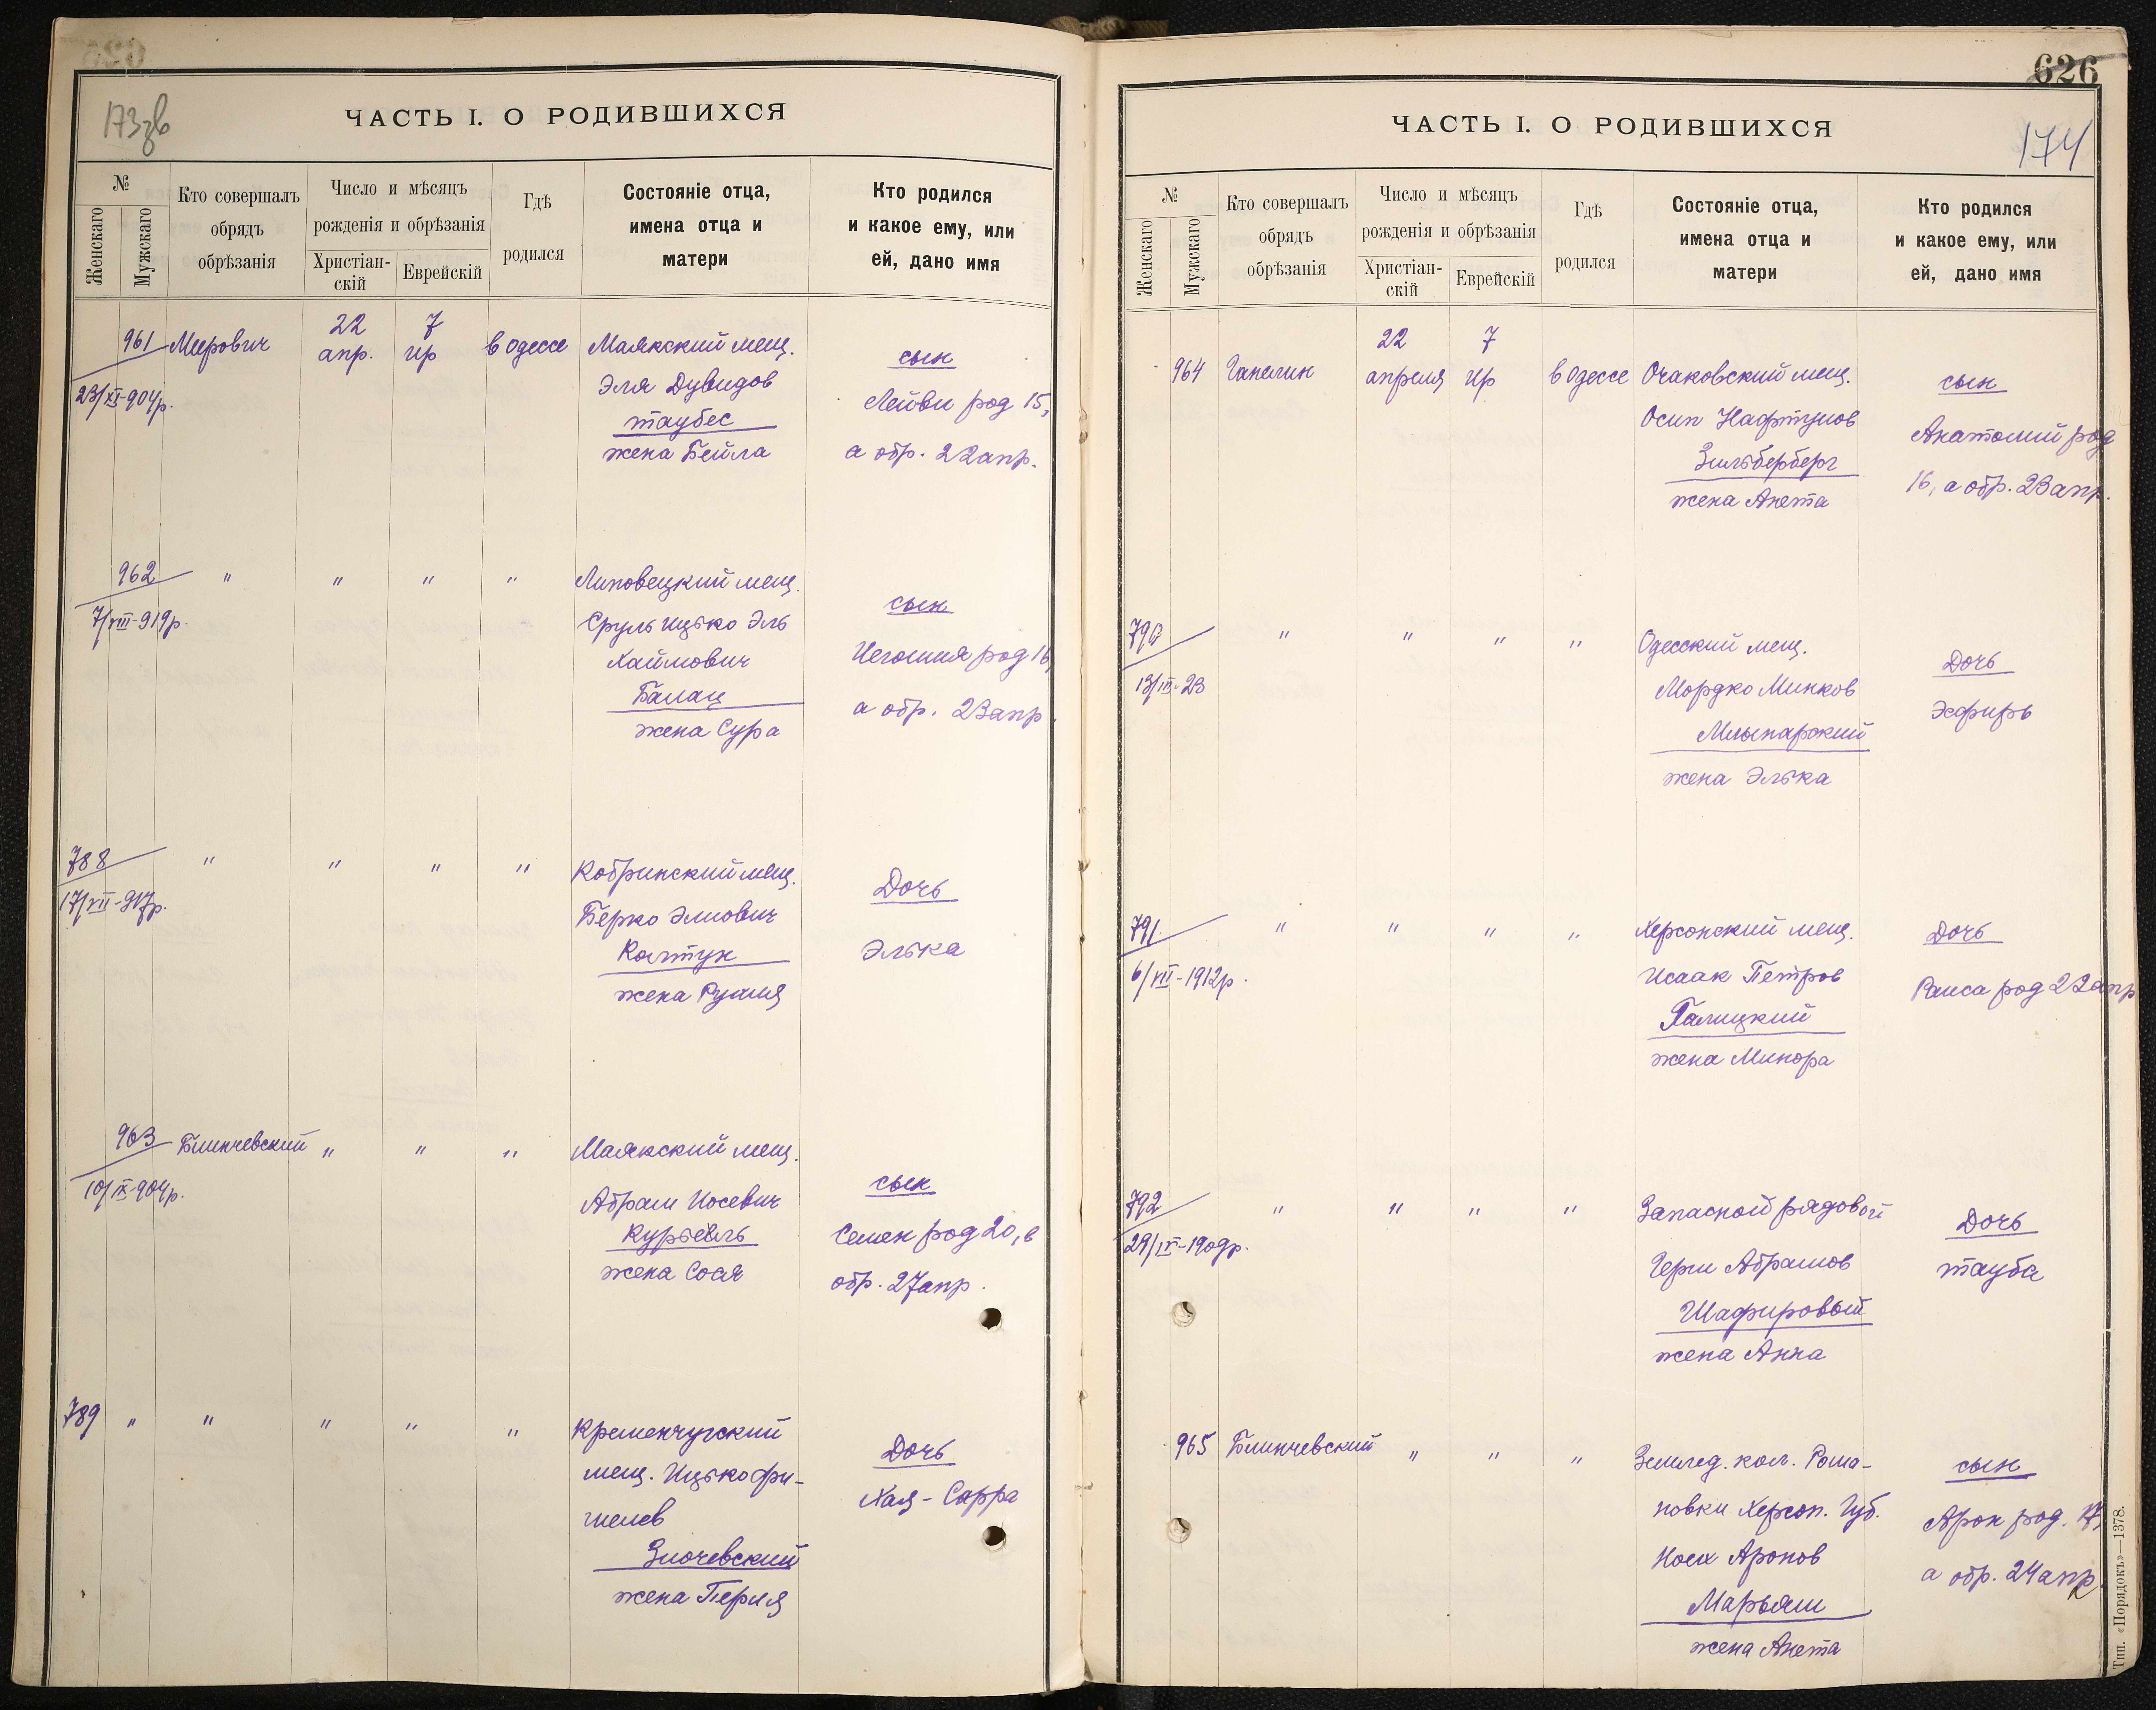 173зв
ЧАСТЬ I. О РОДИВШИХСЯ
№
Женскаго
Мужскаго
Кто совершалъ
обрядъ
обрѣзанія
Число и мѣсяцъ
рожденія и обрѣзанія
Христіан-
скій
Еврейскій
Гдѣ
родился
Состояніе отца,
имена отца и
матери
Кто родился
и какое ему, или
ей, дано имя
961
23/XI-904р.
Меерович
22
апр.
7
ир
в Одессе
Маякский мещ.
Эля Дувидов
Таубес
жена Бейла
сын
Лейви род 15,
а обр. 22 апр.
962
7/VIII-919р.
" " " "
Липовецкий мещ.
Сруль Ицько Эль
Хаймович
Балац
жена Сура
сын
Иегошия род 16,
а обр. 23 апр.
788
17/VII-917р.
" " " "
Кобринский мещ.
Берко Элиович
Колтун
жена Рухля
Дочь
Элька
963
10/IX-904р.
Блинчевский
" " "
Маякский мещ.
Абрам Иосевич
Курьель
жена Сося
сын
Семен род 20, в
обр. 27 апр.
789 "
" " " "
Кременчугский
мещ. Ицько Фи-
шелев
Злочевский
жена Перля
Дочь
Хая-Сарра
626
174
ЧАСТЬ I. О РОДИВШИХСЯ
№
Женскаго
Мужскаго
Кто совершалъ
обрядъ
обрѣзанія
Число и мѣсяцъ
рожденія и обрѣзанія
Христіан-
скій
Еврейскій
Гдѣ
родился
Состояніе отца,
имена отца и
матери
Кто родился
и какое ему, или
ей, дано имя
964
Гапелин
22
апреля
7
ир
в Одессе
Очаковский мещ.
Осип Нафтулов
Зильберберг
жена Анета
сын
Анатолий род
16, а обр. 23 апр.
790
13/III-23
" " " "
Одесский мещ.
Мордко Минков
Млынарский
жена Элька
Дочь
Эсфирь
791
6/VII-1912р.
" " " "
Херсонский мещ.
Исаак Петров
Галицкий
жена Минора
Дочь
Раиса род 22 апр
792
29/IV-1909р.
" " " "
Запасной рядовой
Герш Абрамов
Шафировый
жена Анна
Дочь
Тауба
965
Блинчевский
" " "
Землед. кол. Рома-
новки Херсон. Губ.
Иосл Аронов
Марьяш
жена Анета
сын
Арон род. 17,
а обр. 24 апр.
Тип. «Порядокъ»—1378.